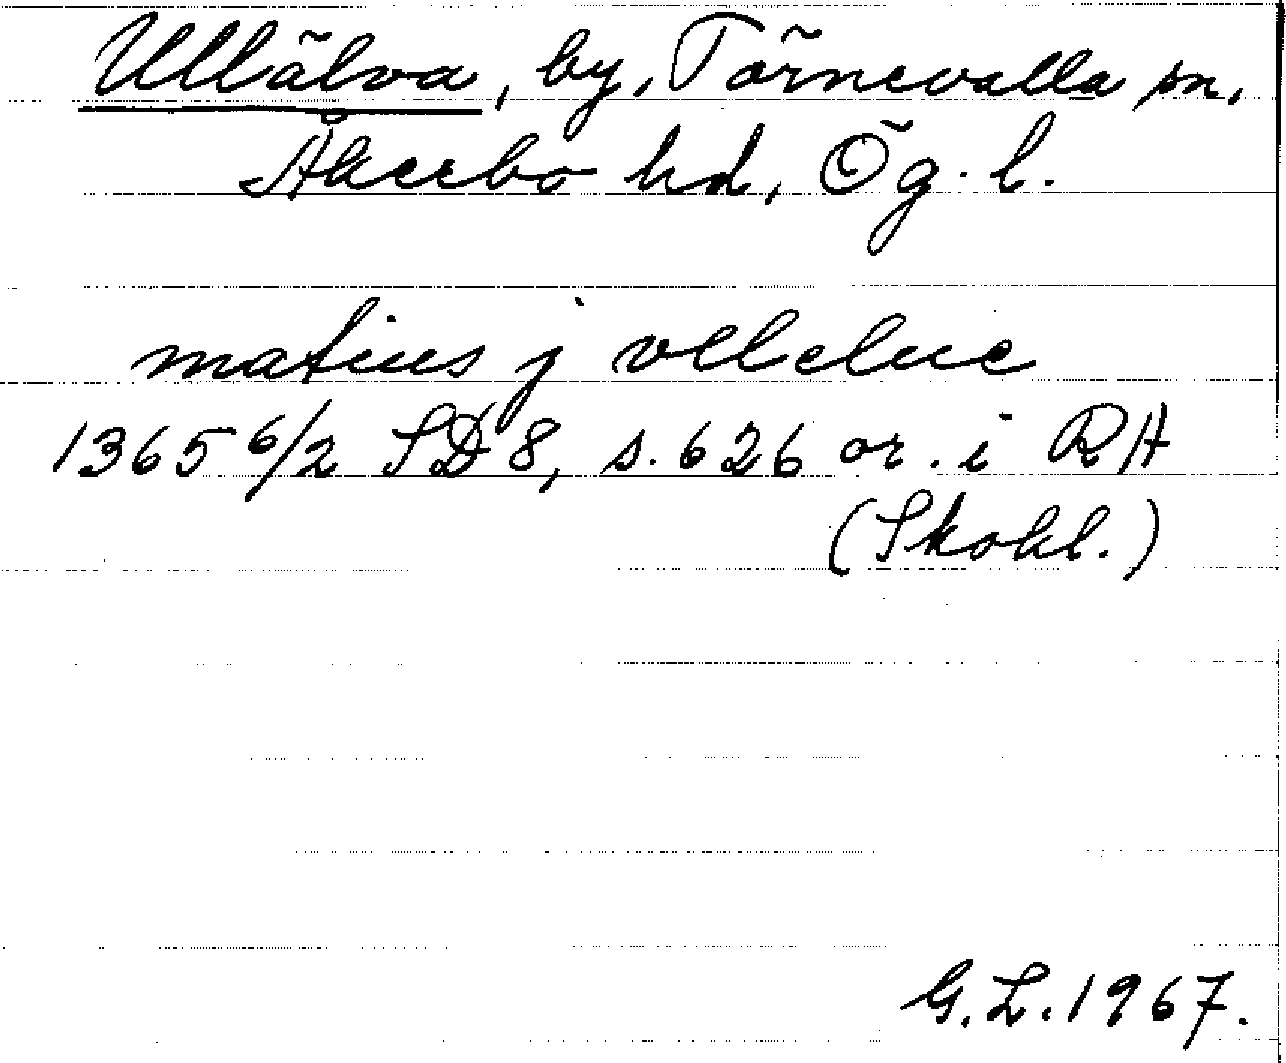 Ullälva, by, Törnevalla sn,
Åkerbo hd, Ög. l.
matius j vllelue
1365 6/2 SD 8, s. 626 or. i RA
(Skokl.)
G.L. 1967.